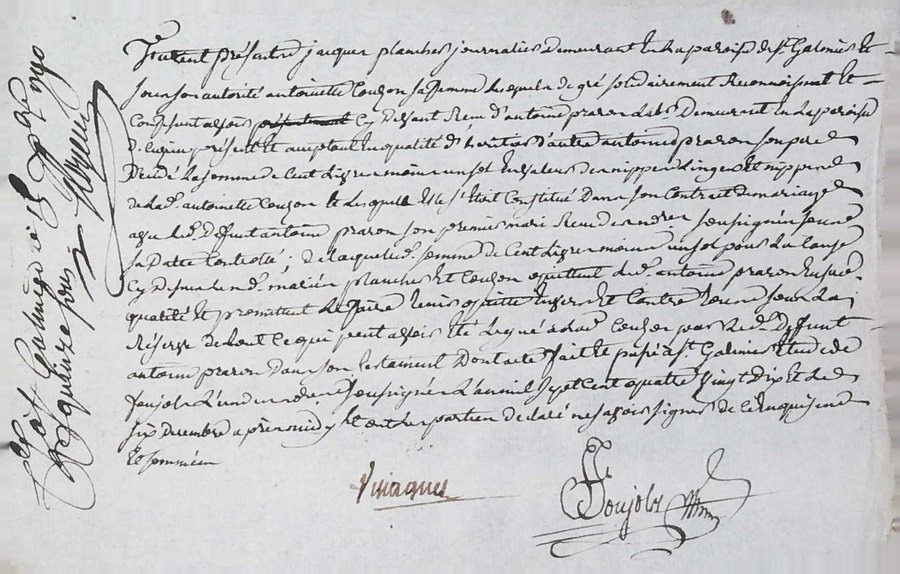 présentre jacques planches journalier Demeurant En La paroisse de st Galmier Et
sous son autorité antoinette Couzon sa femme Lesquels de gré solidairement Reconnoissent Et
Confessent avoir présentement Cy Devant Reçu d'antoine prazon Lab.r Demeurant En La paroisse
présent Et acceptant En qualité d'heritier d'autre antoine prazon son pere
La somme de Cent Livres moins un sol En valeur des nippes Linges Et
de Lad. antoinette Couzon Et Lesquels Elle s'etoit Constitué Dans son Contrat de mariage
avec Led. Deffunt antoine prazon son premier mari Reçu de notre soussigné sous
sa Datte Controlle ; de Laquelle somme de Cent Livres moins un sol pour La Cause
Cy Dessus Les d. mariés planches Et Couzon quittent Led. antoine prazon En sa
qualité Et promettent Le faire tenir quitte Envers Et Contre tous sous La
Réserve de tout Ce qui peut avoir Eté Legué à Lad. Couzon par Led. Deffunt
antoine prazon Dans son testament Dont acte fait Et passé à st Galmier Etude de
foujols L'un des notres soussignés L'an mil sept Cent quatre vingt Dix Et Le
six decembre Et ont Les parties declaré ne sçavoir signer de Ce Enquises
Et sommées
foujols
Controlé à st
Reçu quinze sous